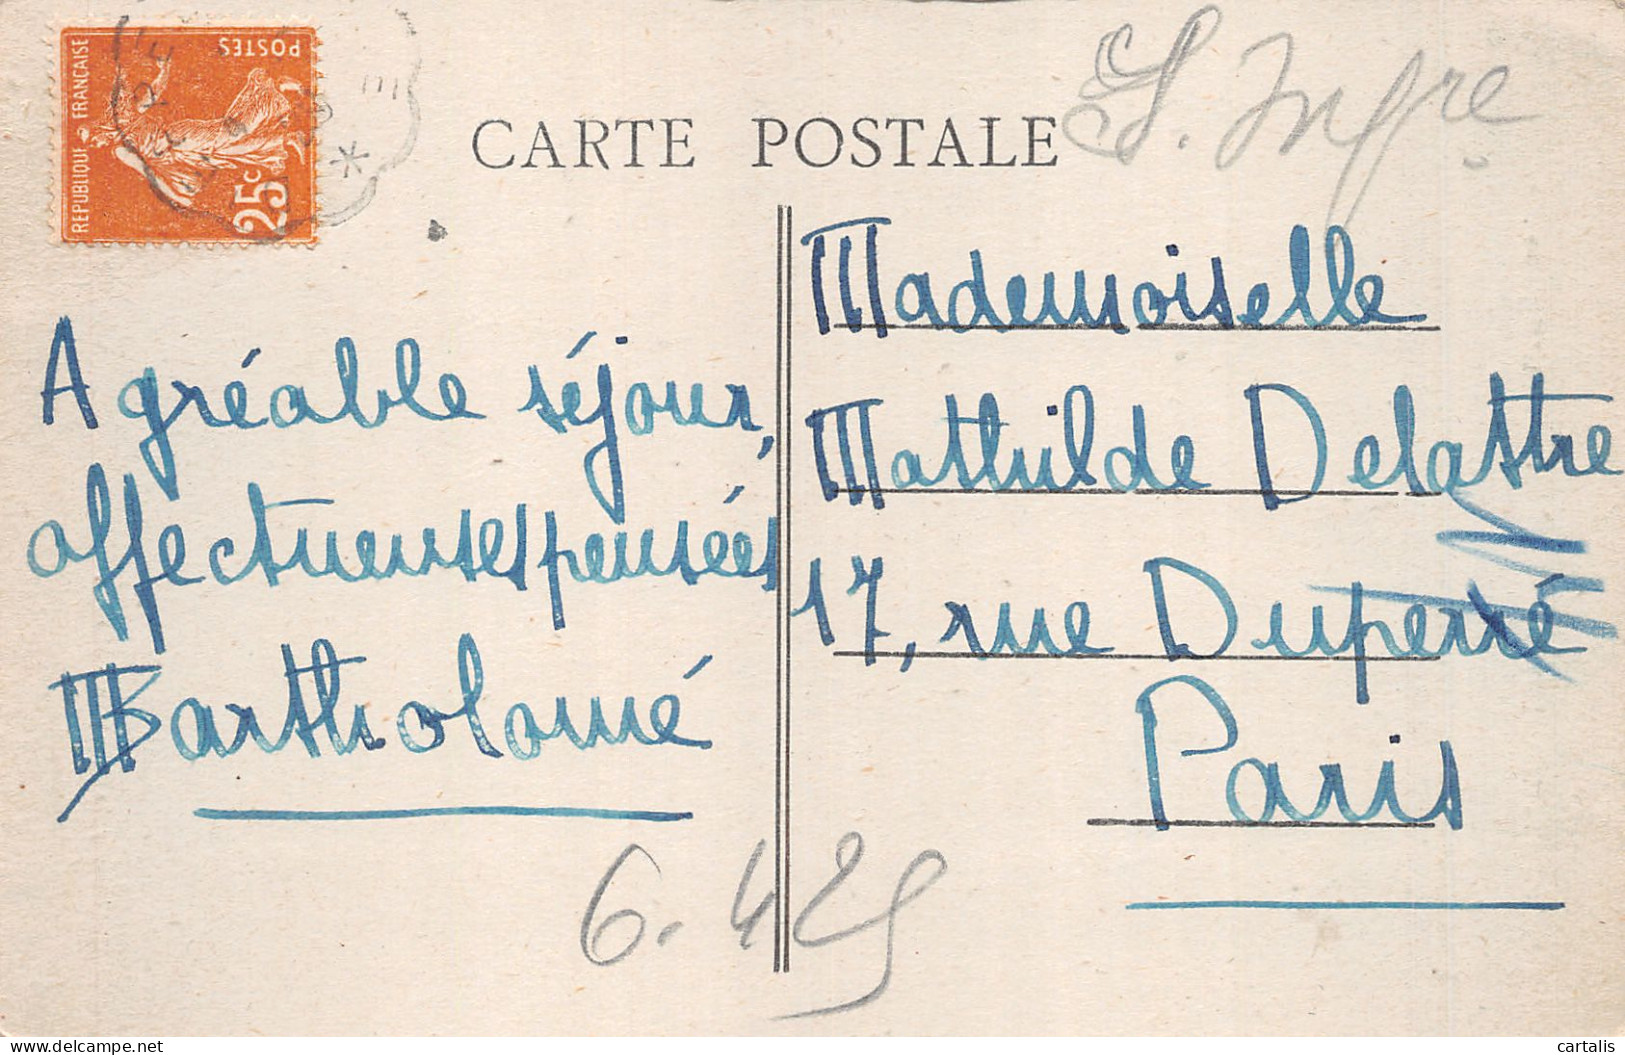 POSTES
REPUBLIQUE FRANÇAISE
25c
CARTE POSTALE
S. Infre
Agréable séjour,
affectueuses pensées
M Bartholomé
Mademoiselle
Mathilde Delattre
17, rue Duperré
Paris
6.4 29
cartalis